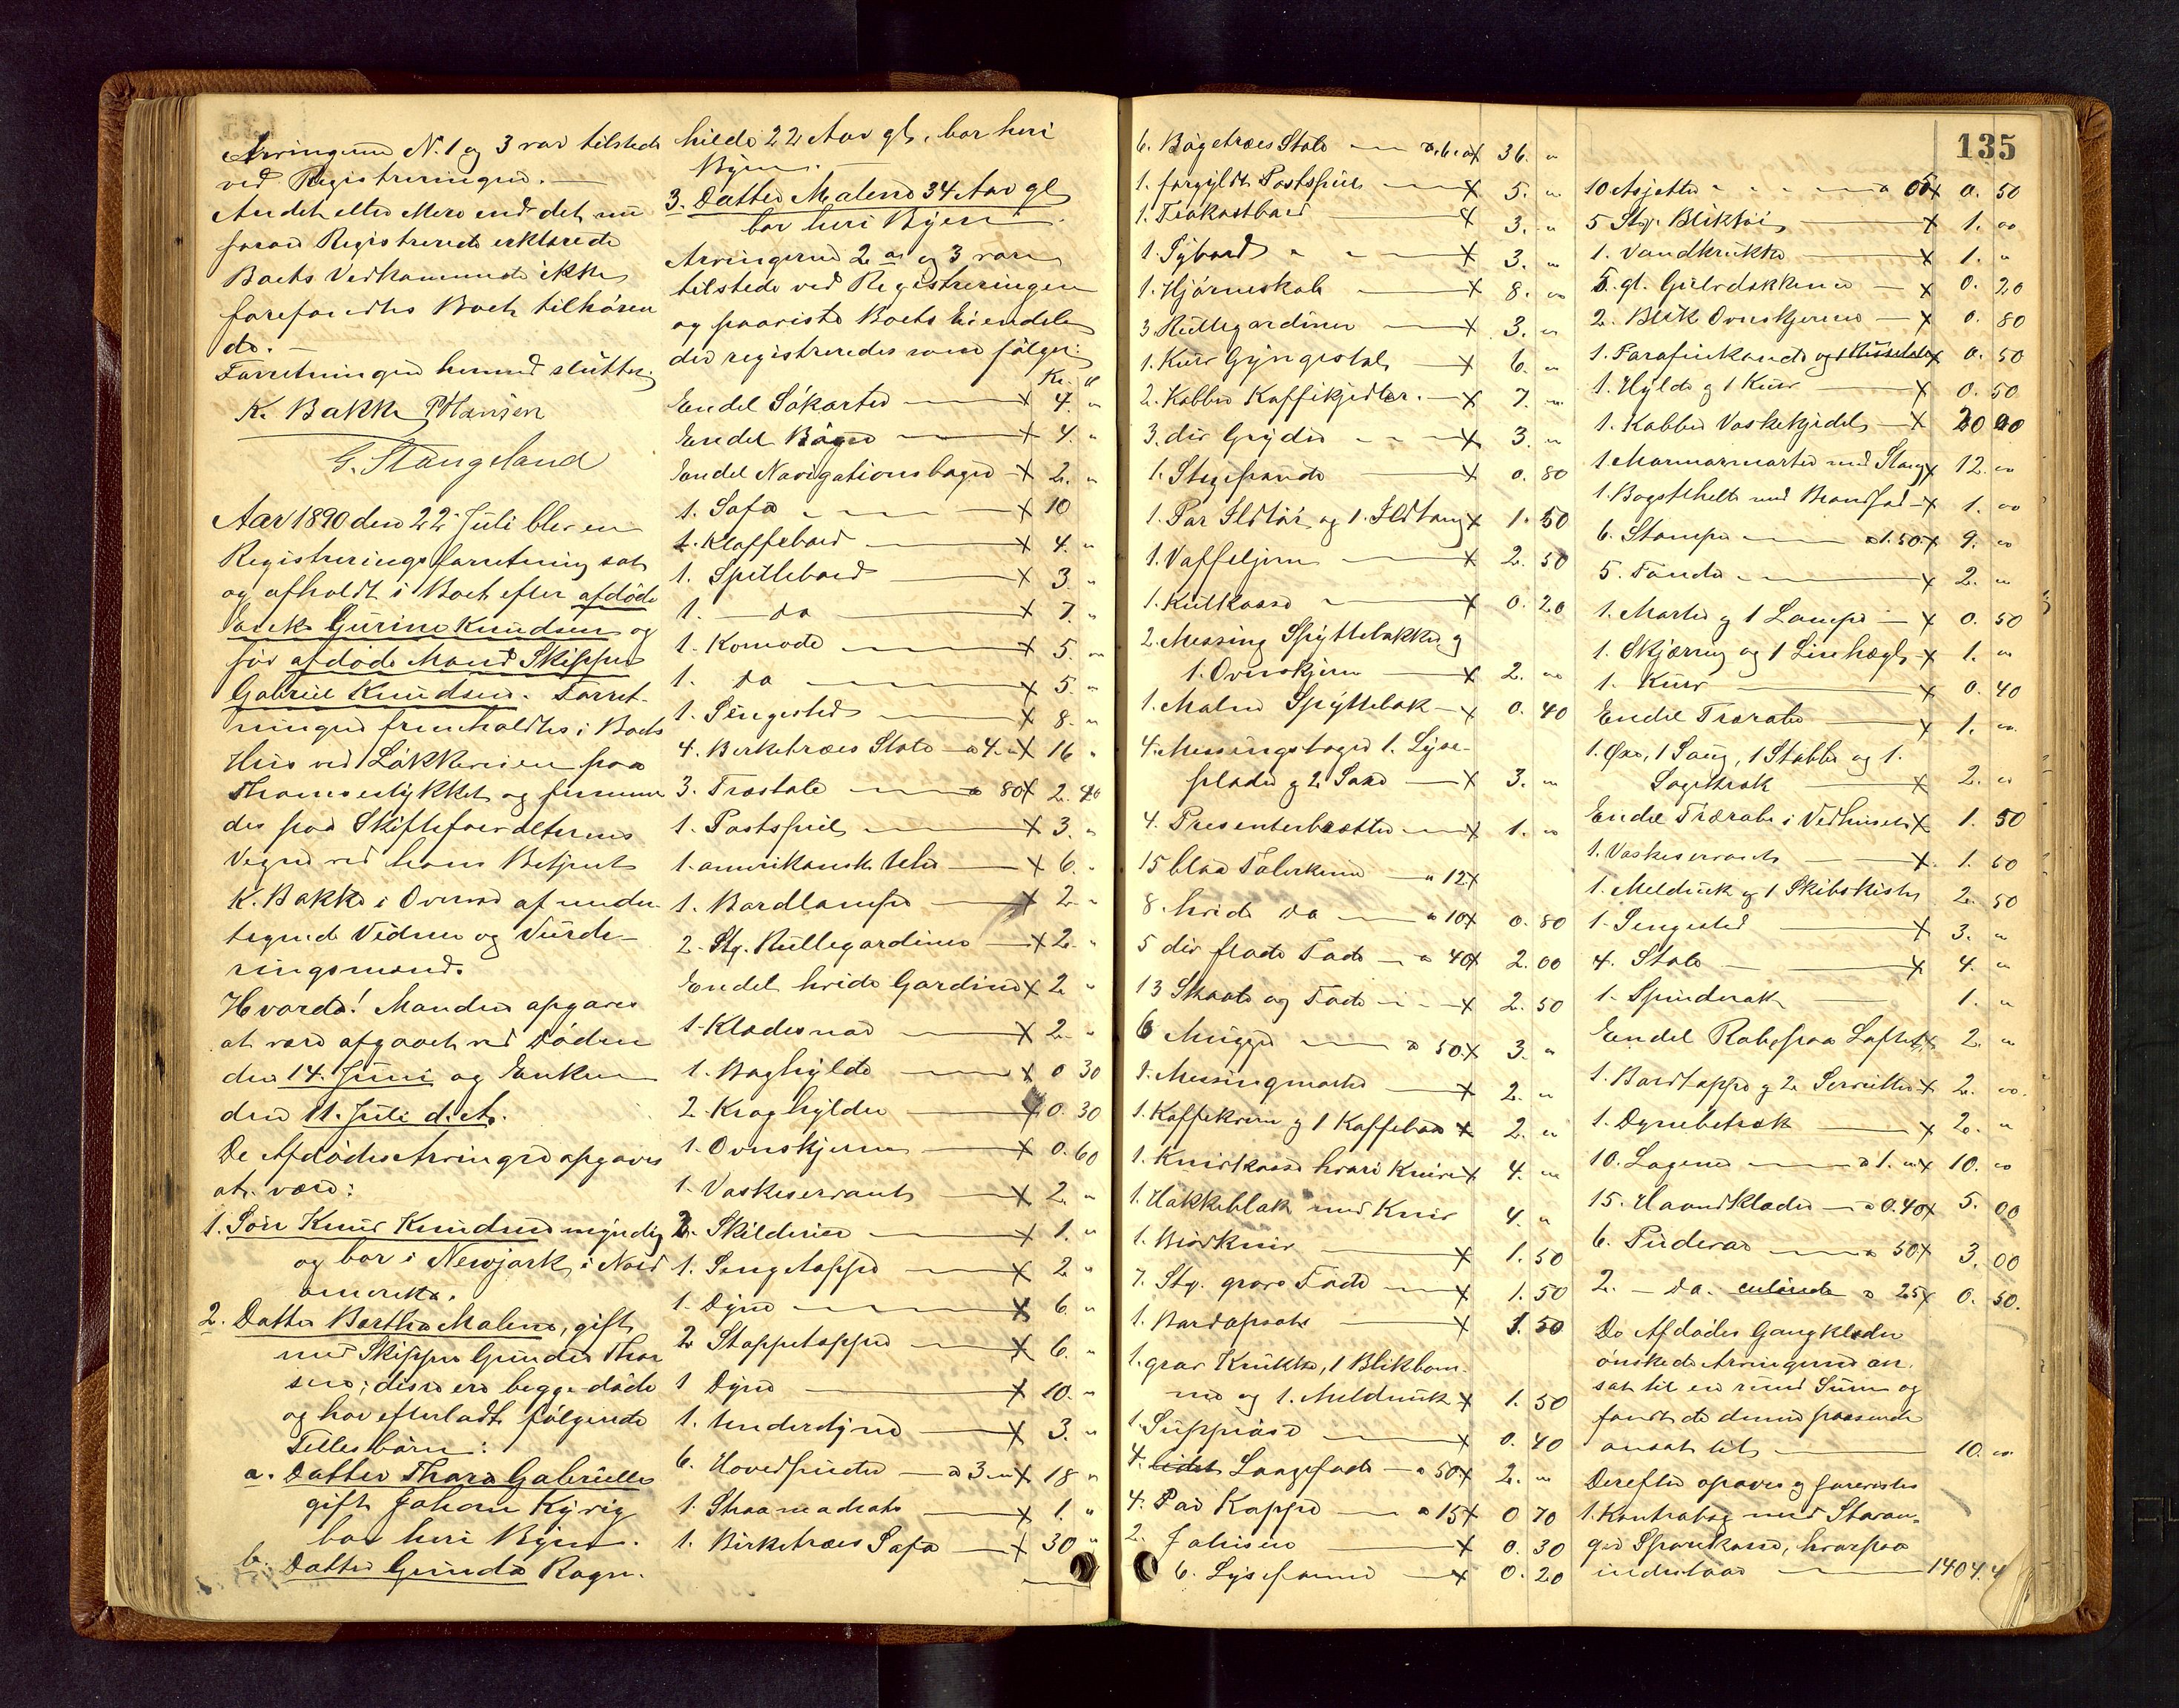 Arvingerne N. 1 og 3 var tilstede
ved Registreringen. —
Andet eller Mere end det nu
foran Registrerede erklærede
Boets Vedkommende ikke
forefandtes Boet tilhören
de. —
Forretningen hermed sluttet.
K. Bakke PHansen
G. Stangeland
Aar 1890 den 22 Juli blev en
Registreringsforretning sat
og afholdt i Boet efter afdöde
Enke Gurine Knudsen og
för afdöde Mand Skipper
Gabriel Knudsen. Forret-
ningen fremholdtes i Boets
Hus ved Lökkeveien paa
Thomsestykket og fremme
des paa Skifteforvalterens
Vegne ved hans Betjent
K. Bakke i Overvær af under
tegnede Vidner og Vurde-
ringsmænd.
Hvorda! Manden opgaves
at være afgaaet ved Döden
den 14. Juni og Enken
den 11. Juli d. A.
De Afdödes Arvinger opgaves
at være:
1. Sön Knud Knudsen myndig
og bor i Newjork i Nord
amerika.
2. Datter Bertha Malene, gift
med Skipper Gunder Thor
sen; disse ere begge döde
og har efterladt fölgende
Fellesbörn:
a. Datter Thora Gabrielle
gift Johan Kyvig
bor heri Byen.
b. Datter Gunda Ragn.
hilde 22 Aar gl. bor heri
Byen. —
3. Datter Malene 34 Aar gl
bor heri Byen.
Arvingerne 2 a og 3 vare
tilstede ved Registreringen
og paaviste Boets Eiendele
der registreredes som fölger:
Kr. "
Endel Sökarter — x 4. "
Endel Böger — x 4. "
Endel Navigationsbøger x 2. "
1. Sofa — x 10
1. Klaffebord — x 4. "
1. Spillebord — x 3 "
1. — do — x 7. "
1. Komode — x 5. "
1. do — x 5. "
1. Sengested — x 8. "
4. Birketræes Stole a 4. " x 16 "
3. Træstole — a 80 x 2. 40
1. Postspeil — x 3. "
1. amerikansk Uhr — x 6. "
1. Bordlampe — x 2 "
2. Stg. Rullegardiner — x 2. "
Endel hvide Gardiner x 2 "
1. Klædesnor — x 2. "
1. Boghylde — x 0 30
2. Kraghylder — x 0. 30
1. Ovnskjerm — x 0. 60
1. Vaskeservant — x 2. "
2. Skilderier — x 1. "
1. Sengetæppe — x 2 "
1. Dyne — x 6. "
2 Stoppetæpper — x 6. "
1 Dyne — x 10. "
1. Underdyne — x 3. "
6. Hovedpuder — a 3 " x 18 "
1. Straamadrats — x 1. "
1. Birketræes Sofa — x 30 "
6. Bögetræes Stole — a 6. " x 36. "
1. forgyldt Postspeil — x 5. "
1. Frokostbord — x 3. "
1. Sybord — x 3. "
1. Hjörneskab — x 8. "
3 Rullegardiner — x 3. "
1. Kurv Gyngestol — x 6. "
2. Kobber Kaffikjedler. — x 7. "
3. div Gryder — x 3. "
1. Stegepande — x 0. 80
1. Par Ildtöi og 1. Ildtang x 1. 50
1. Vaffeljern — x 2. 50
1. Kulkasse — x 0. 20
2. Messing Spyttebakker og
1. Ovnskjerm — x 2. "
1. Malm Spyttebak — x 0. 40
4. Messingstager 1. Lyse-
plade og 2 Saxe — x 3. "
4. Presenterbrætter — x 1. "
15 blaa Talerkener — a 12 x
8. hvide do — a 10 x 0. 80
5 div flade Fade — a 40 x 2. 00
13 Skaale og Fade — x 2. 50
6 Mugger — a 50. x 3. "
1. Messingmorter — x 2. "
1. Kaffekvern og 1 Kaffebræ x 2. "
1. Knivkasse hvori Knive x 4. "
1. Hakkeblok med Kniv 4. "
1. Brödkniv — x 1. 50
7. Stg. grove Fade — x 1. 50
1. Bordopsats — x 1. 50
1. grov Krukke, 1 Blikbom
me og 1. Meldunk x 1. 50
1. Suppeöse — x 0. 40
4. Langefade — a 50 x 2. "
4. Par Kopper — a 15 x 0 70
2. — x 0. 30
6. Lysefade — x 0. 20
135
10 Asjetter — a 05 x 0. 50
5 Stg. Bliktöi — x 1. "
1. Vandkrukke — x 1. "
5. gl. Gulvdækkener — x 0. 20
2. Blik Ovnskjerme — x 0. 80
1. Parafinkande og 1 x 0. 50
1. Hylde og 1 Kurv — x 0. 50
1. Kobber Vaskekjedel — x 20 00
1. Marmormorter med Stang x 12. "
1. Bagstehelle med Brandjod x 1. "
6. Stamper — a 1. 50 x 9. "
5. Tönder — x 2. "
1. Morter og 1 Lampe — x 0. 50
1. Skjæring og 1 Linhegl x 1. "
1. Kurv — x 0. 40
Endel Trærabe — x 1. "
1. Öxe, 1 Saug, 1 Stabbe og 1.
Sagekrak — x 2. "
Endel Trærabe i Vedhuset x 1. 50
1. Vaskeservant — x 1. 50
1. Meldunk og 1 Skibskiste 2. 50
1. Sengested — x 3. "
4. Stole — x 4. "
1. Spinderok — 1. "
Endel Rabe paa Loftet x 2. "
1. Bordtæppe og 2 Servietter x 2. "
1. Dynebetræk — x 2. "
10. Lagener — a 1. " x 10. "
15. Haandklæder — a 0.40 x 5. 00
6. Pudevar — a 50 x 3. 00
2. — do. — a 25 x 0. 50.
De Afdödes Gangklæder
önskede Arvingerne an.
sat til en rund Sum og
fandt de denne passende
ansat til — 10. "
Derefter opgaves og forevistes
1. Kontrabog med Stavan-
ger Sparekasse, hvorpaa
indestaar — 1404. 4